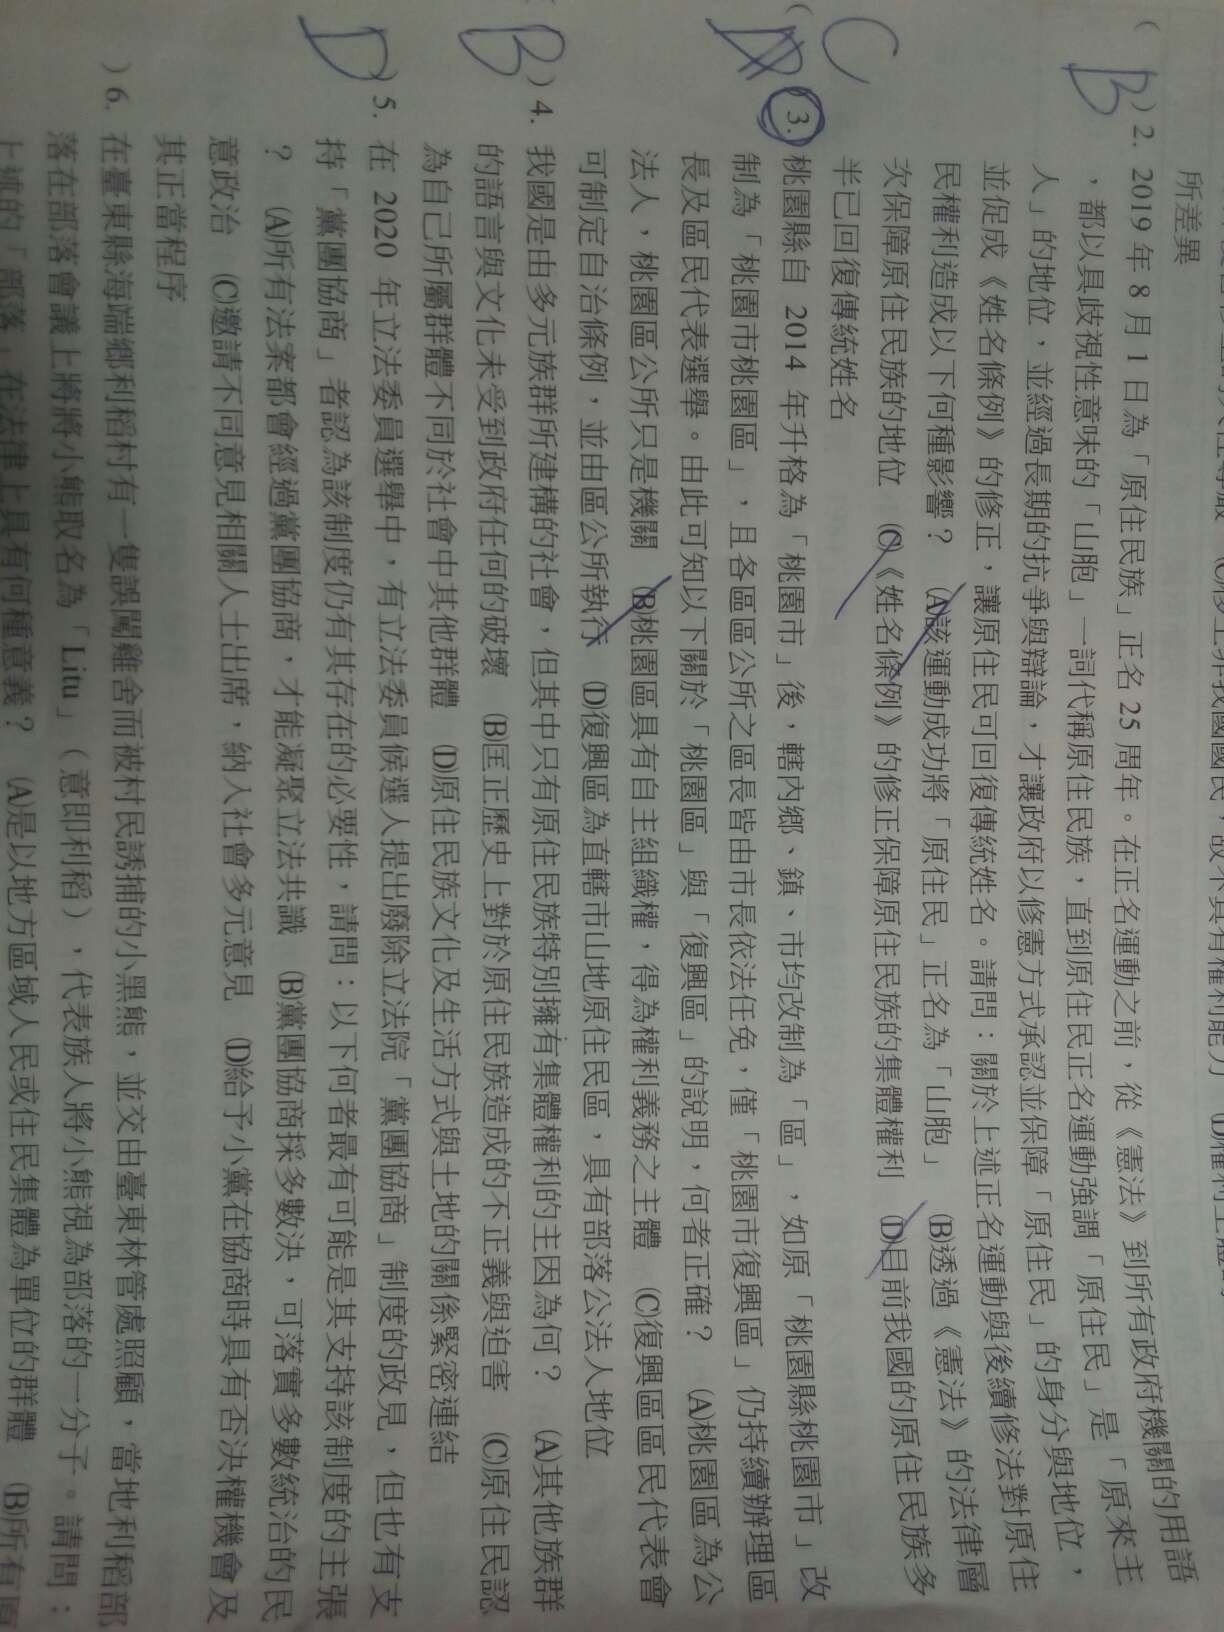 所差異
B
( ) 2. 2019 年 8 月 1 日為「原住民族」正名 25 周年。在正名運動之前，從《憲法》到所有政府機關的用語
，都以具歧視性意味的「山胞」一詞代稱原住民族，直到原住民正名運動強調「原住民」是「原來主
人」的地位，並經過長期的抗爭與辯論，才讓政府以修憲方式承認並保障「原住民」的身分與地位，
並促成《姓名條例》的修正，讓原住民可回復傳統姓名。請問：關於上述正名運動與後續修法對原住
民權利造成以下何種影響？ (A)該運動成功將「原住民」正名為「山胞」 (B)透過《憲法》的法律層
次保障原住民族的地位 (C)《姓名條例》的修正保障原住民族的集體權利 (D)目前我國的原住民族多
半已回復傳統姓名
C
( ) 3. 桃園縣自 2014 年升格為「桃園市」後，轄內鄉、鎮、市均改制為「區」，如原「桃園縣桃園市」改
制為「桃園市桃園區」，且各區區公所之區長皆由市長依法任免，僅「桃園市復興區」仍持續辦理區
長及區民代表選舉。由此可知以下關於「桃園區」與「復興區」的說明，何者正確？ (A)桃園區為公
法人，桃園區公所只是機關 (B)桃園區具有自主組織權，得為權利義務之主體 (C)復興區區民代表會
可制定自治條例，並由區公所執行 (D)復興區為直轄市山地原住民區，具有部落公法人地位
B
( ) 4. 我國是由多元族群所建構的社會，但其中只有原住民族特別擁有集體權利的主因為何？ (A)其他族群
的語言與文化未受到政府任何的破壞 (B)匡正歷史上對於原住民族造成的不正義與迫害 (C)原住民認
為自己所屬群體不同於社會中其他群體 (D)原住民族文化及生活方式與土地的關係緊密連結
D
) 5. 在 2020 年立法委員選舉中，有立法委員候選人提出廢除立法院「黨團協商」制度的政見，但也有支
持「黨團協商」者認為該制度仍有其存在的必要性，請問：以下何者最有可能是其支持該制度的主張
？ (A)所有法案都會經過黨團協商，才能凝聚立法共識 (B)黨團協商採多數決，可落實多數統治的民
意政治 (C)邀請不同意見相關人士出席，納入社會多元意見 (D)給予小黨在協商時具有否決權機會及
其正當程序
) 6. 在臺東縣海端鄉利稻村有一隻誤闖雞舍而被村民誘捕的小黑熊，並交由臺東林管處照顧，當地利稻部
落在部落會議上將將小熊取名為「Litu」（意即利稻），代表族人將小熊視為部落的一分子。請問：
上述的「部落」在法律上具有何種意義？ (A)是以地方區域人民或住民集體為單位的群體 (B)所有